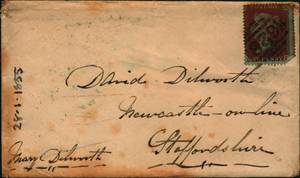 David Dilworth
Newcastle-on-line
Staffordshire
28-1-1855
Mary Dilworth